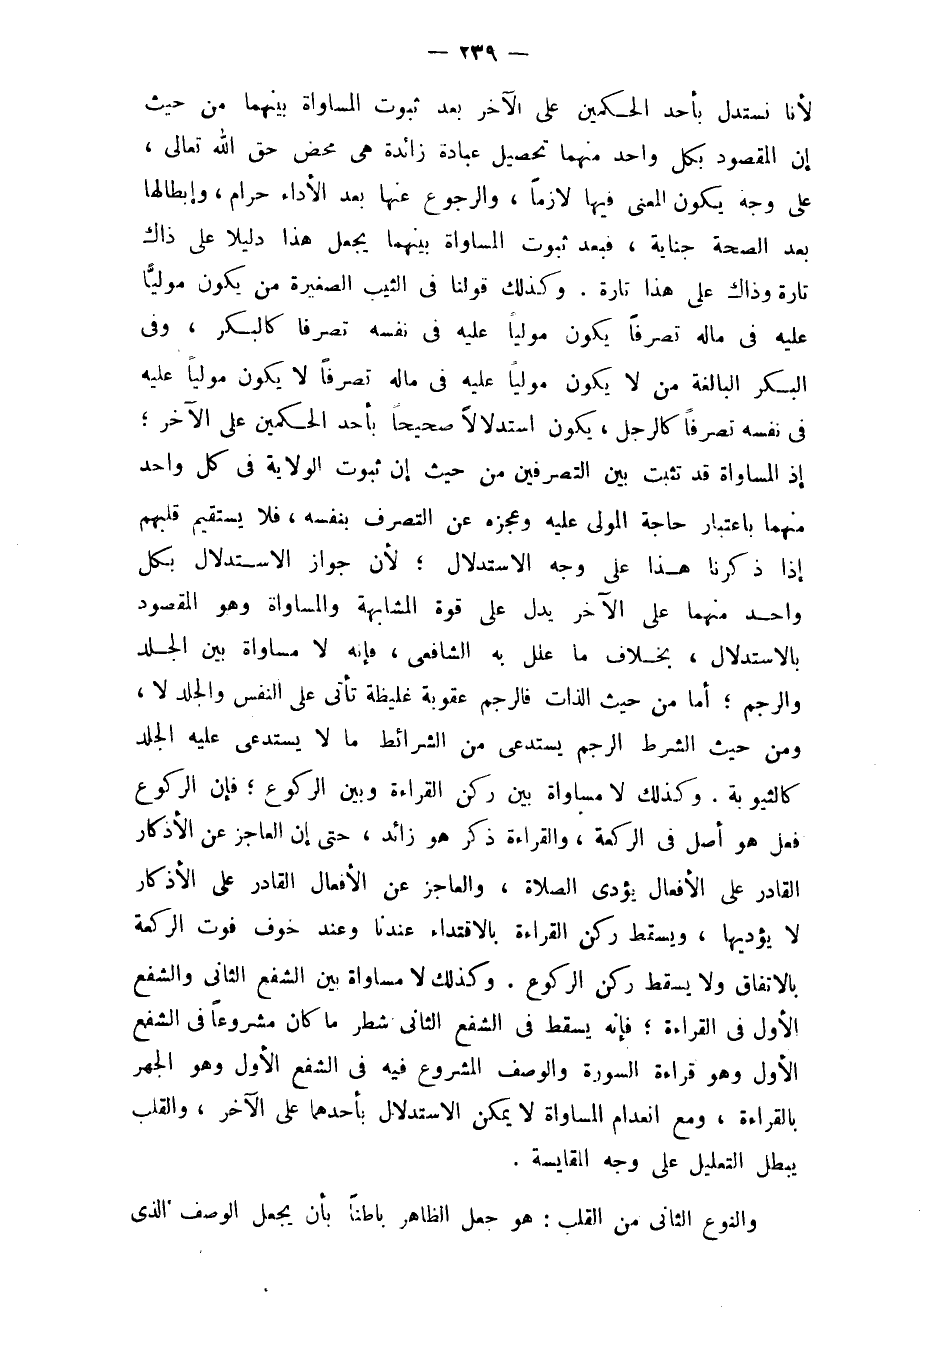 — ٢٣٩ —
لأنا نستدل بأحد الحكمين على الآخر بعد ثبوت المساواة بينهما من حيث
إن المقصود بكل واحد منهما تحصيل عبادة زائدة هى محض حق الله تعالى ،
على وجه يكون المعنى فيها لازماً ، والرجوع عنها بعد الأداء حرام ، وإبطالها
بعد الصحة جناية ، فبعد ثبوت المساواة بينهما يجعل هذا دليلا على ذاك
تارة وذاك على هذا تارة . وكذلك قولنا فى الثيب الصغيرة من يكون موليًّا
عليه فى ماله تصرفاً يكون مولياً عليه فى نفسه تصرفا كالبكر ، وفى
البكر البالغة من لا يكون مولياً عليه فى ماله تصرفاً لا يكون مولياً عليه
فى نفسه تصرفاً كالرجل ، يكون استدلالاً صحيحاً بأحد الحكمين على الآخر ؛
إذ المساواة قد تثبت بين التصرفين من حيث إن ثبوت الولاية فى كل واحد
منهما باعتبار حاجة المولى عليه وعجزه عن التصرف بنفسه ، فلا يستقيم قلبهم
إذا ذكرنا هذا على وجه الاستدلال ؛ لأن جواز الاستدلال بكل
واحد منهما على الآخر يدل على قوة المشابهة والمساواة وهو المقصود
بالاستدلال ، بخلاف ما علل به الشافعى ، فإنه لا مساواة بين الجلد
والرجم ؛ أما من حيث الذات فالرجم عقوبة غليظة تأتى على النفس والجلد لا ،
ومن حيث الشرط الرجم يستدعى من الشرائط ما لا يستدعى عليه الجلد
كالثيوبة . وكذلك لا مساواة بين ركن القراءة وبين الركوع ؛ فإن الركوع
فعل هو أصل فى الركعة ، والقراءة ذكر هو زائد ، حتى إن العاجز عن الأذكار
القادر على الأفعال يؤدى الصلاة ، والعاجز عن الأفعال القادر على الأذكار
لا يؤديها ، ويسقط ركن القراءة بالاقتداء عندنا وعند خوف فوت الركعة
بالاتفاق ولا يسقط ركن الركوع . وكذلك لا مساواة بين الشفع الثانى والشفع
الأول فى القراءة ؛ فإنه يسقط فى الشفع الثانى شطر ما كان مشروعاً فى الشفع
الأول وهو قراءة السورة والوصف المشروع فيه فى الشفع الأول وهو الجهر
بالقراءة ، ومع انعدام المساواة لا يمكن الاستدلال بأحدهما على الآخر ، والقلب
يبطل التعليل على وجه المقايسة .
والنوع الثانى من القلب : هو جعل الظاهر باطناً بأن يجعل الوصف الذى